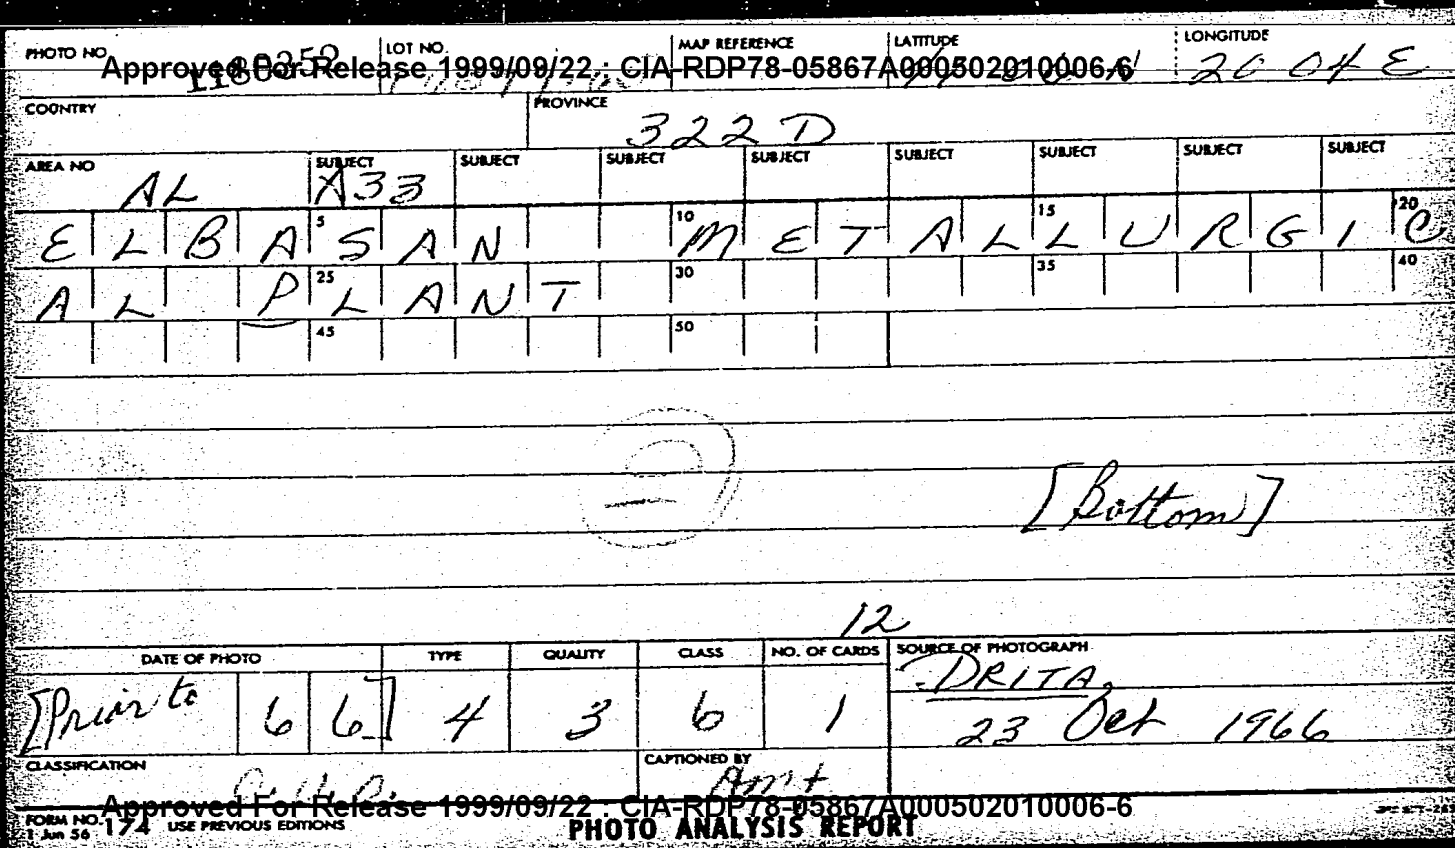 PHOTO NO. LOT NO. MAP REFERENCE LATITUDE LONGITUDE
1180252 20 04 E
Approved For Release 1999/09/22 : CIA-RDP78-05867A000502010006-6
COUNTRY PROVINCE
322 D
AREA NO SUBJECT SUBJECT SUBJECT SUBJECT SUBJECT SUBJECT SUBJECT SUBJECT
AL A33
5 10 15 20
ELBASAN METALLURGIC
25 30 35 40
AL PLANT
45 50
[Bottom]
12
DATE OF PHOTO TYPE QUALITY CLASS NO. OF CARDS SOURCE OF PHOTOGRAPH
DRITA,
[Prior to 66] 4 3 6 1 23 Oct 1966
CLASSIFICATION CAPTIONED BY
Approved For Release 1999/09/22 : CIA-RDP78-05867A000502010006-6
FORM NO. 174 USE PREVIOUS EDITIONS PHOTO ANALYSIS REPORT
1 Jun 56